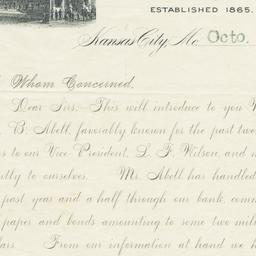 ESTABLISHED 1865.
Kansas City, Mo. Octo.
Whom Concerned.
Dear Sirs:- This will introduce to you
B. Abell, favorably known for the past two
to our Vice-President, L. F. Wilson, and
to ourselves. Mr. Abell has handled
past year and a half through our bank,
paper and bonds amounting to some two
From our information at hand we